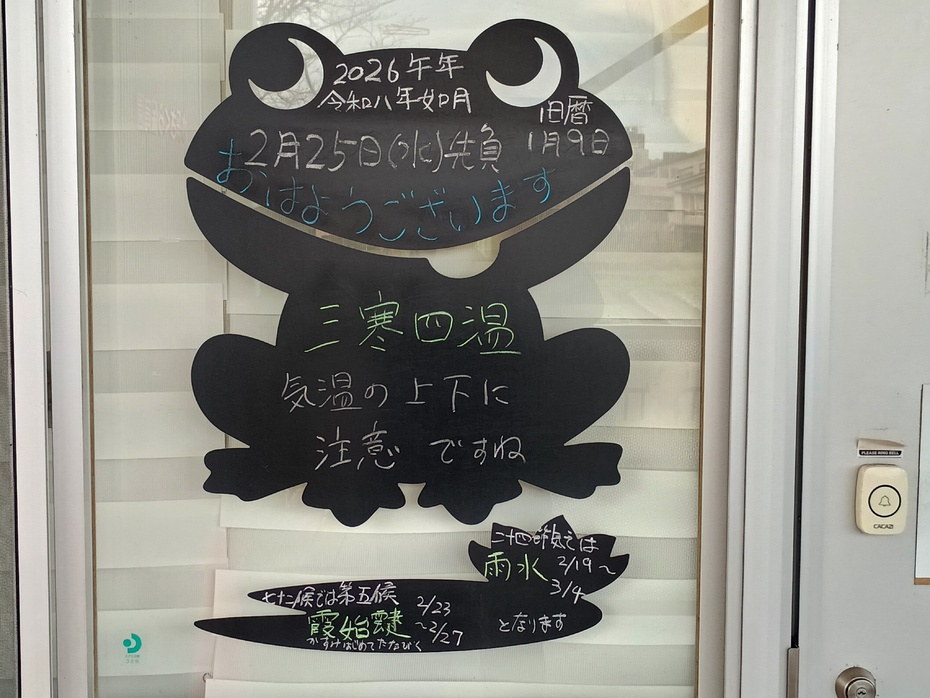 2026年午年
令和八年如月
旧暦
2月25日(水)先負 1月9日
おはようございます
三寒四温
気温の上下に
注意 ですね
二十四節気では
雨水 2/19〜
3/4
七十二候では第五候 2/23
霞始靆 〜2/27 となります
かすみはじめてたなびく
PLEASE RING BELL
CACAZI